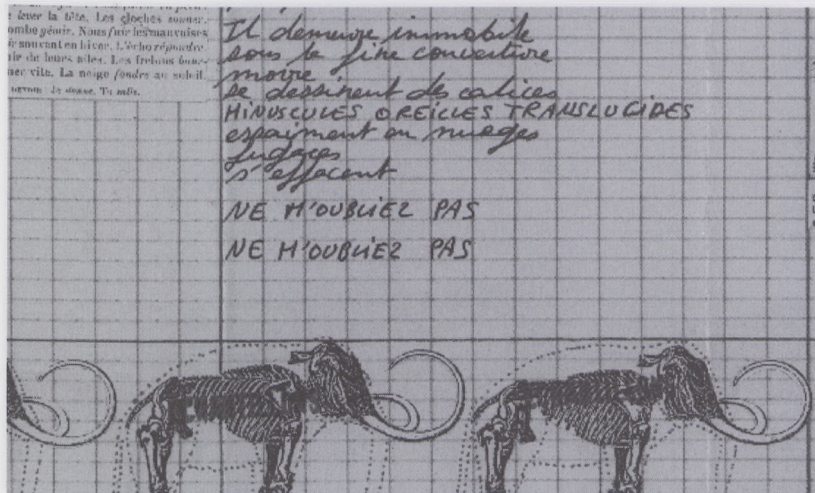 lever la tête. Les cloches sonner.
ombe gémir. Nous fuir les mauvaises
ir souvent en hiver. L'écho répondre.
de leurs ailes. Les frelons
vite. La neige fondre au soleil
Je donne. Tu
Il demeure immobile
sous la fine couverture
moire
se dessinent des calices
MINUSCULES OREILLES TRANSLUCIDES
essaiment en nuages
fugaces
s'effacent
NE M'OUBLIEZ PAS
NE M'OUBLIEZ PAS